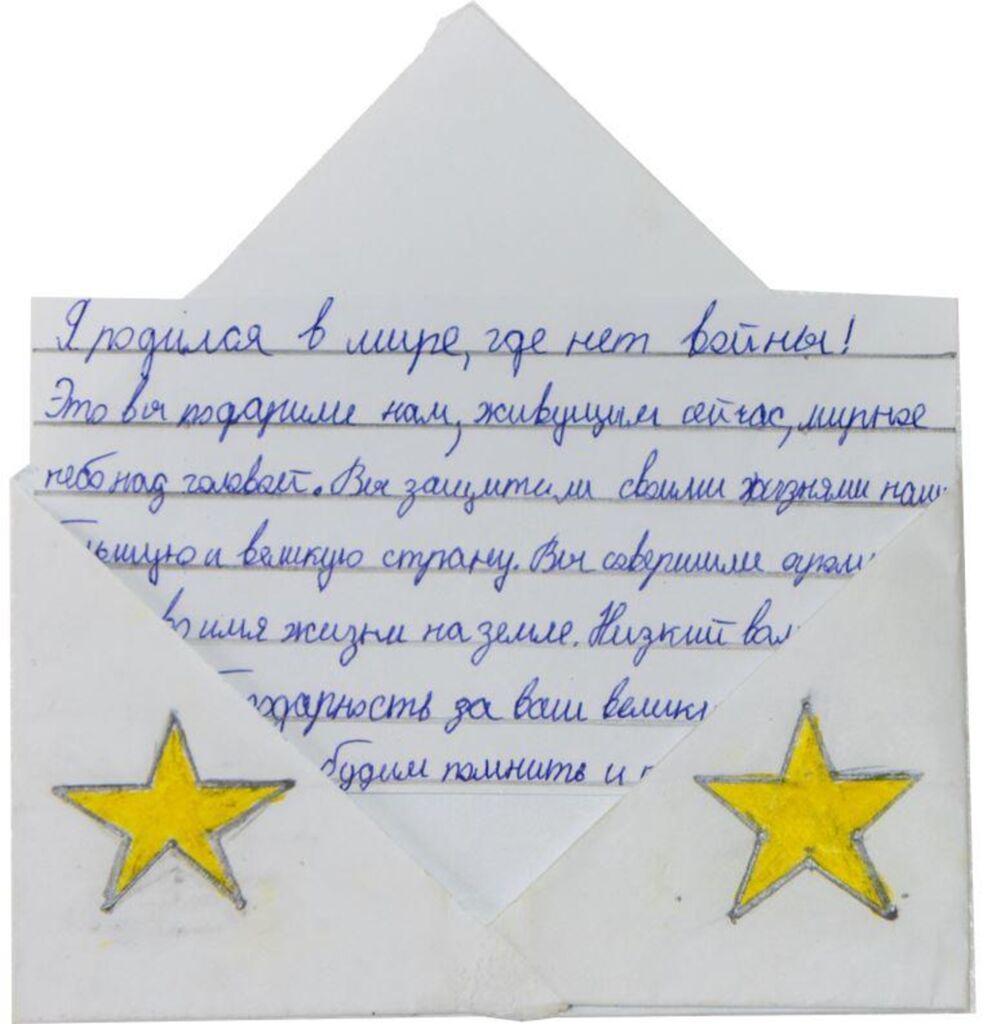 Я родился в мире, где нет войны!
Это вы подарили нам, живущим сейчас, мирное
небо над головой. Вы защитили своими жизнями наш
и великую страну. Вы совершили
имя жизни на земле. Низкий вам
за ваш
будим помнить и